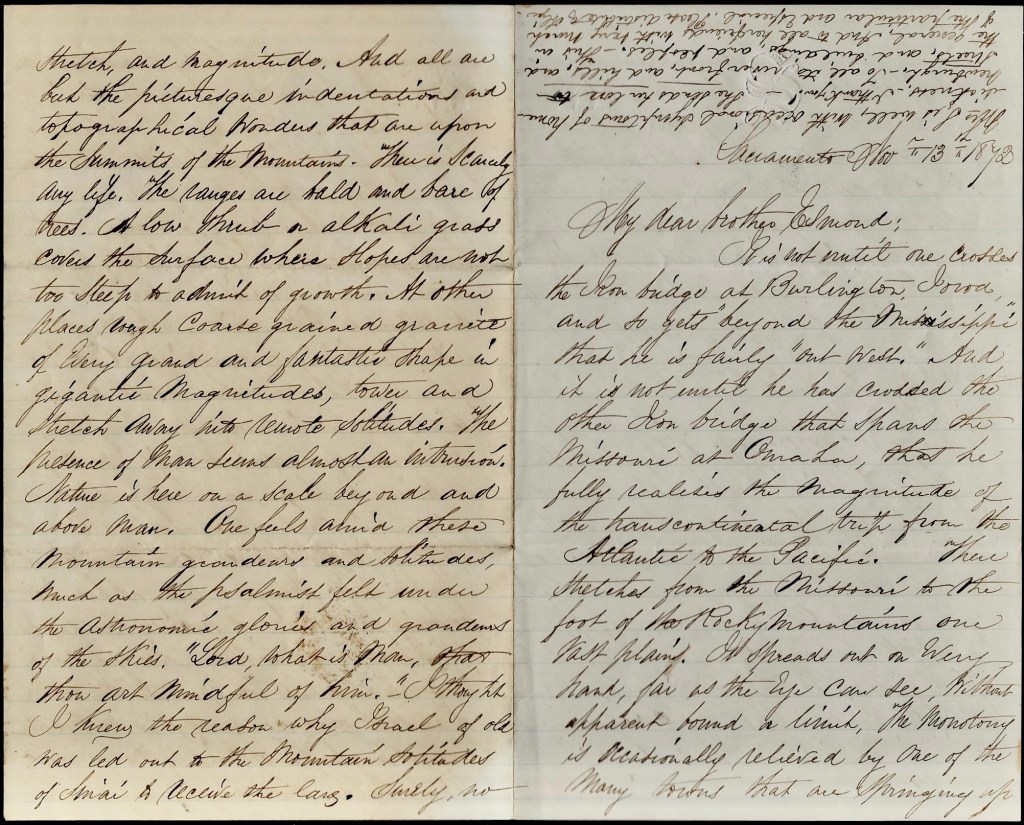 Sacramento Nov 13th 1873
My dear brother Edmond:
It is not until one crosses
the Iron bridge at Burlington, Iowa,
and so gets "beyond the Mississippi"
that he is fairly "out west." And
it is not until he has crossed the
other Iron bridge that spans the
Missouri at Omaha, that he
fully realises the magnitude of
the transcontinental trip from the
Atlantic to the Pacific. There
stretches from the Missouri to the
foot of the Rocky Mountains one
vast plain. It spreads out on Every
hand, far as the Eye can see, without
apparent bound or limit, The Monotony
is occasionally relieved by one of the
Many towns that are Springing up
stretch, and magnitude. And all are
but the picturesque indentations and
topographical wonders that are upon
the Summits of the Mountains. There is Scarcely
any life. The ranges are bald and bare of
trees. A low shrub or alkali grass
covers the surface where slopes are not
too steep to admit of growth. At other
places rough Coarse grained granite
of Every grand and fantastic shape in
gigantic Magnitudes, tower and
stretch away into remote solitudes. The
presence of Man seems almost an intrusion.
Nature is here on a scale beyond and
above man. One feels amid these
Mountain grandeurs and solitudes,
much as the psalmist felt under
the astronomic glories and grandeurs
of the skies. "Lord, what is Man, that
thou art mindful of him." - I thought
I knew the reason why Israel of old
was led out to the Mountain solitudes
of Sinai to receive the law. Surely, no
is well, with occasional symptoms of home
sickness, I thank you! - She sends her love to
Newburgh, - to all its river front, and hills, and
streets, and buildings, and peoples. - This in
the general, And to all her friends with very much
of the particular and Especial. Please distribute